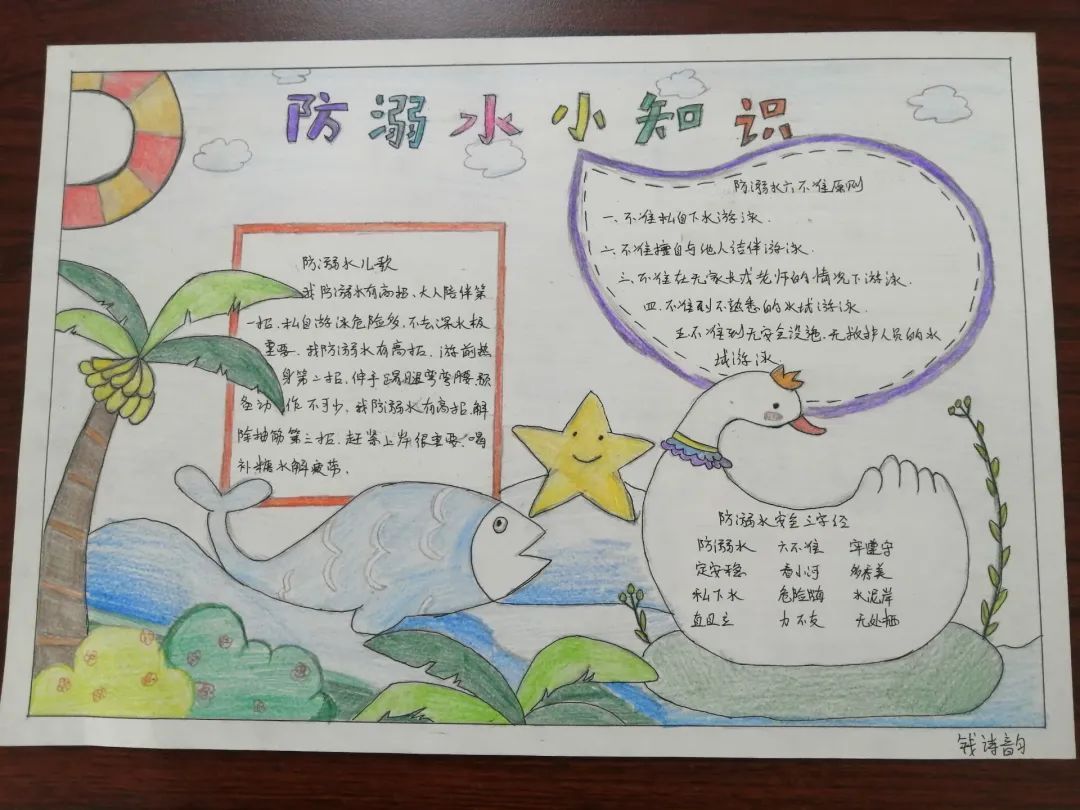 防溺水小知识
防溺水儿歌
我防溺水有高招,大人陪伴第
一招,私自游泳危险多,不去深水极
重要.我防溺水有高招.游前热
身第二招,伸手踢腿弯弯腰.预
备动作不可少,我防溺水有高招.解
除抽筋第三招.赶紧上岸很重要.喝
补糖水解疲劳.
防溺水六不准原则
一、不准私自下水游泳.
二、不准擅自与他人结伴游泳.
三、不准在无家长或老师的情况下游泳.
四.不准到不熟悉的水域游泳.
五.不准到无安全设施.无救护人员的水
域游泳.
防溺水安全三字经
防溺水 六不准 牢遵守
定安稳 看小河 多秀美
私下水 危险随 水泥岸
直且立 力不支 无处栖
钱诗韵